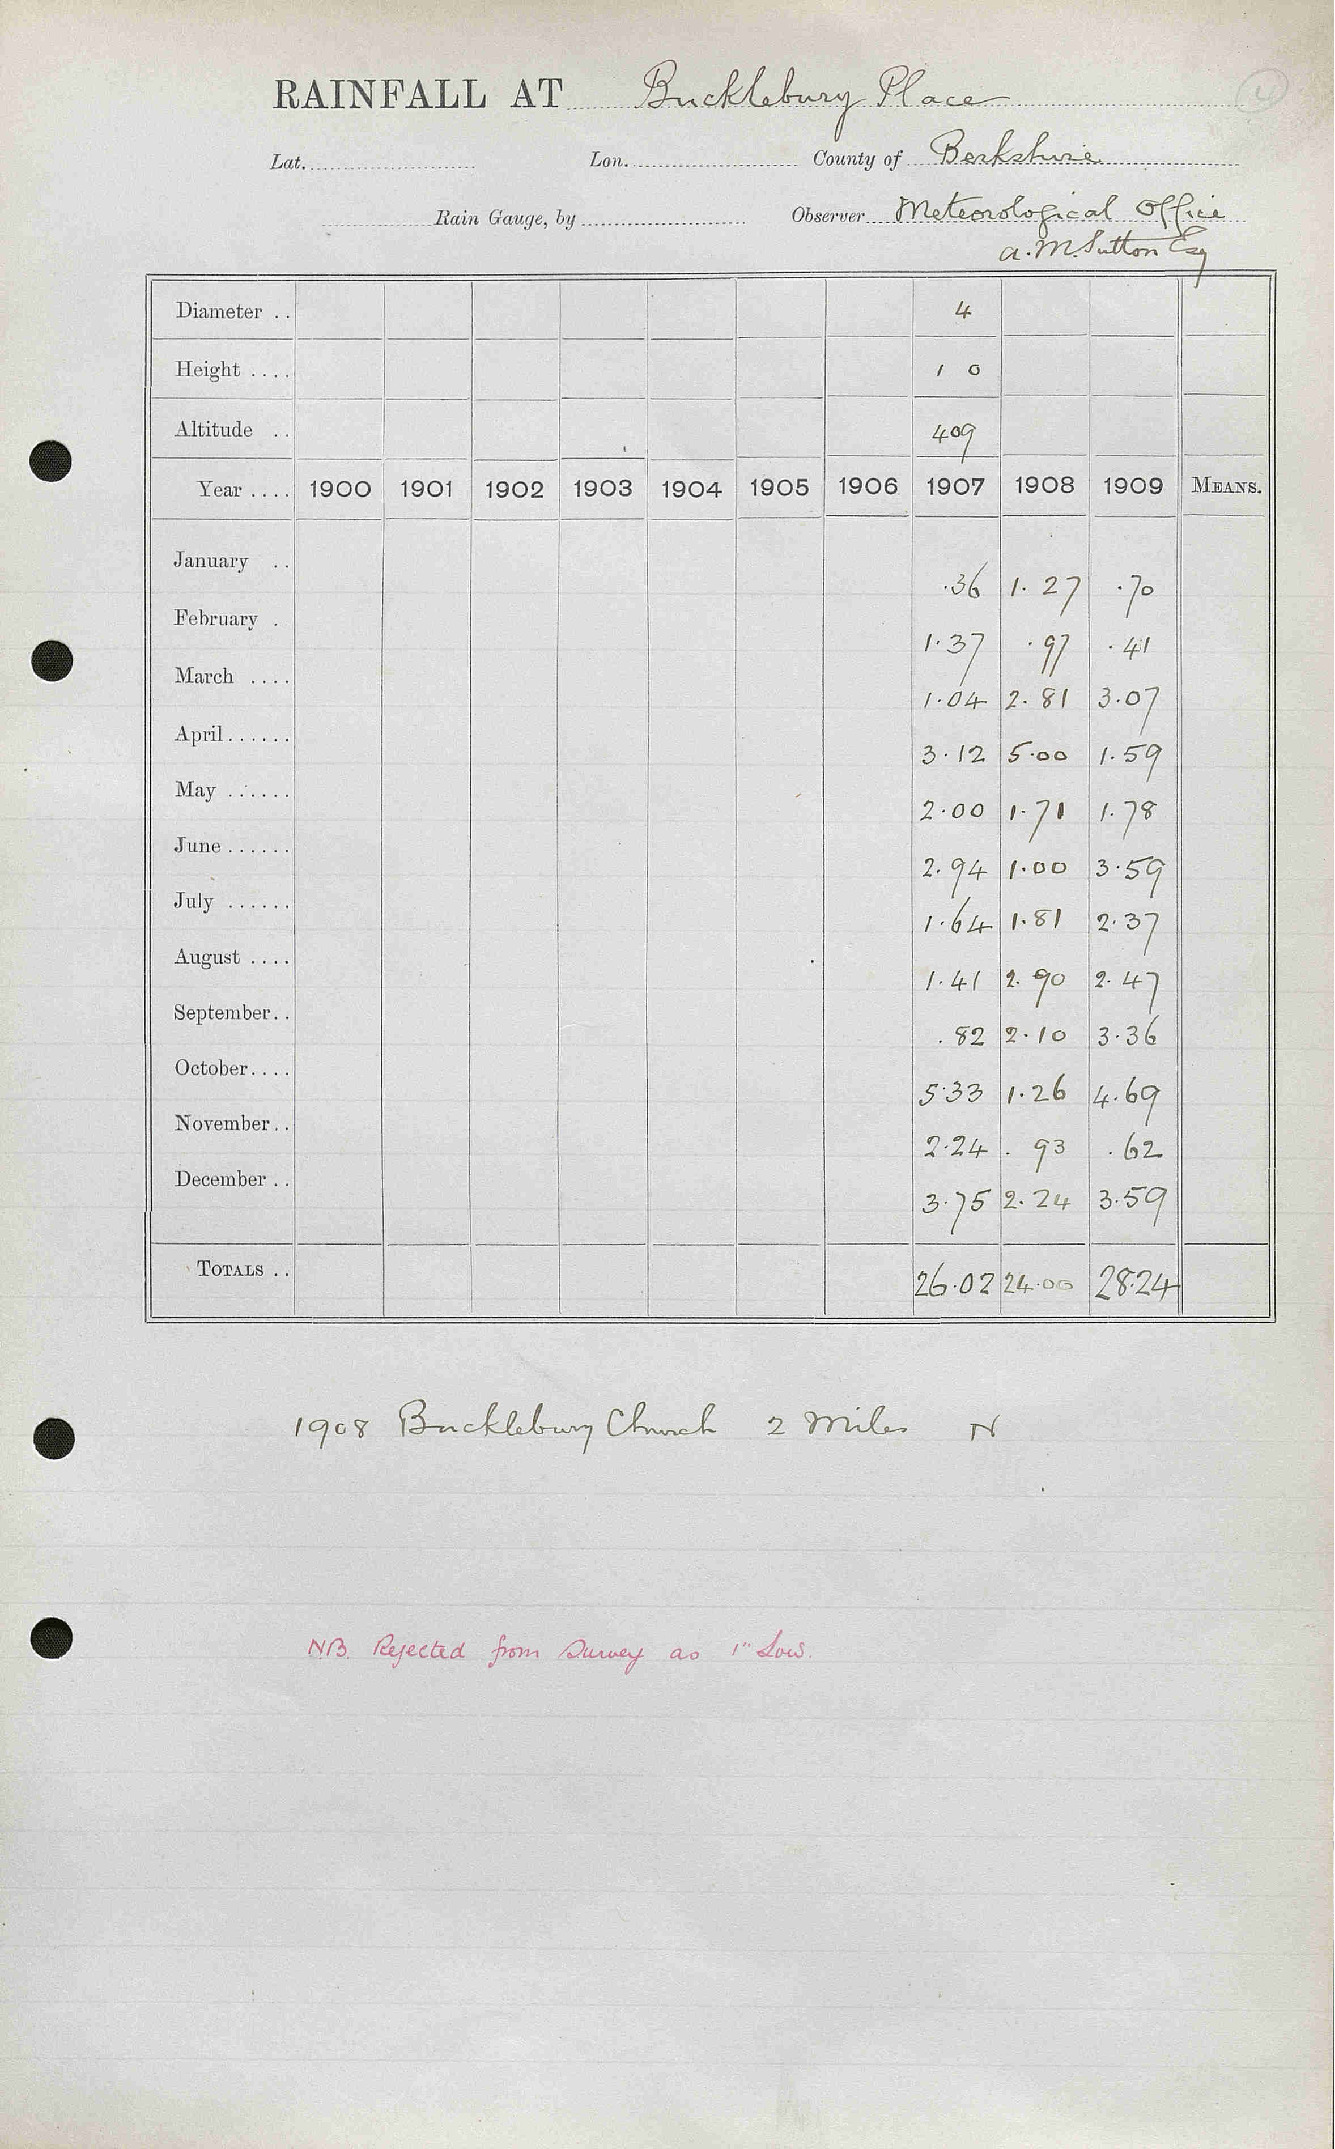 RAINFALL AT Bucklebury Place 4
Lat. Lon. County of Berkshire
Rain Gauge, by Observer Meteorological Office
A. M. Sutton Esq
Diameter .. 4
Height .... 1 0
Altitude .. 409
Year .... 1900 1901 1902 1903 1904 1905 1906 1907 1908 1909 MEANS.
January .. .36 1.27 .70
February . 1.37 .97 .41
March .... 1.04 2.81 3.07
April...... 3.12 5.00 1.59
May ...... 2.00 1.71 1.78
June ...... 2.94 1.00 3.59
July ...... 1.64 1.81 2.37
August .... 1.41 2.90 2.47
September.. .82 2.10 3.36
October.... 5.33 1.26 4.69
November.. 2.24 .93 .62
December .. 3.75 2.24 3.59
TOTALS .. 26.02 24.00 28.24
1908 Bucklebury Church 2 Miles N
NB. Rejected from Survey as 1" Low.